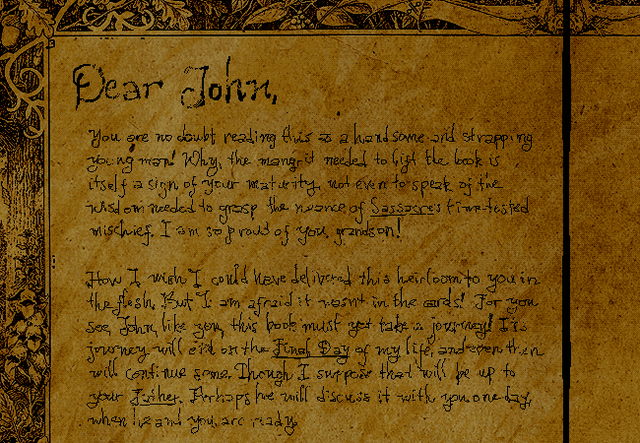 Dear John,
You are no doubt reading this as a handsome and strapping
young man! Why, the mangrit needed to lift the book is
itself a sign of your maturity, not even to speak of the
wisdom needed to grasp the nuance of Sassacre's time-tested
mischief. I am so proud of you, grandson!
How I wish I could have delivered this heirloom to you in
the flesh. But I am afraid it wasn't in the cards! For you
see, John, like you, this book must yet take a journey! Its
journey will end on the Final Day of my life, and even then
will continue some. Though I suppose that will be up to
your Father. Perhaps he will discuss it with you one day,
when he and you are ready.